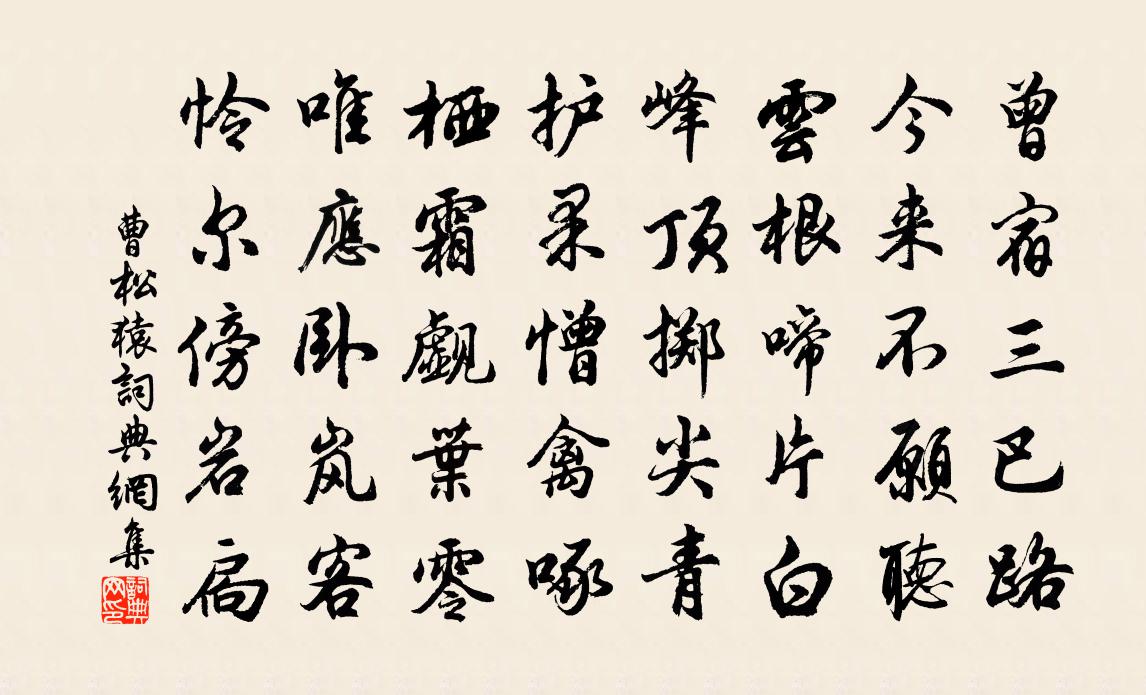 曾宿三巴路
今来不願聽
雲根啼片白
峰顶掷尖青
护果憎禽啄
栖霜觑葉零
唯應卧岚客
怜尔傍岩扃
曹松猿詞典網集
詞典网印